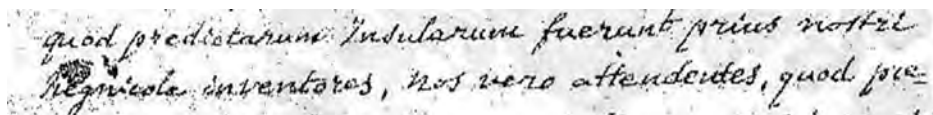 quod predictarum Insularum fuerunt prius nostri
Regnicole inventores, nos vero attendentes, quod pre-